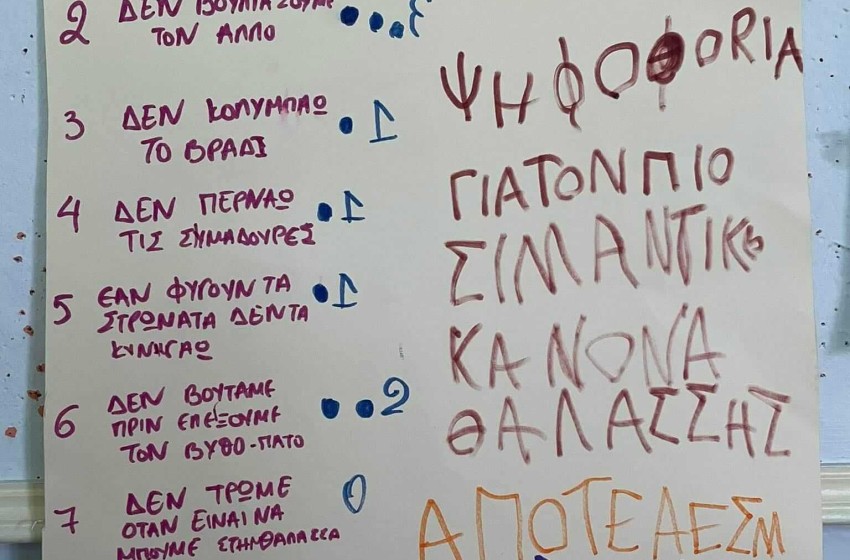 2 ΔΕΝ ΒΟΥΛΙΑΖΟΥΜΕ
ΤΟΝ ΑΛΛΟ
3 ΔΕΝ ΚΟΛΥΜΠΑΩ 1
ΤΟ ΒΡΑΔΙ
4 ΔΕΝ ΠΕΡΝΑΩ 1
ΤΙΣ ΣΥΜΑΔΟΥΡΕΣ
5 ΕΑΝ ΦΥΓΟΥΝ ΤΑ 1
ΣΤΡΩΜΑΤΑ ΔΕΝ ΤΑ
ΚΥΝΗΓΑΩ
6 ΔΕΝ ΒΟΥΤΑΜΕ
ΠΡΙΝ ΕΛΕΞΟΥΜΕ 2
ΤΟΝ ΒΥΘΟ-ΠΑΤΟ
7 ΔΕΝ ΤΡΩΜΕ 0
ΟΤΑΝ ΕΙΝΑΙ ΝΑ
ΜΠΟΥΜΕ ΣΤΗΝ ΘΑΛΑΣΣΑ
ΨΗΦΟΦΟRΙΑ
ΓΙΑ ΤΟΝ ΠΙΟ
ΣΙΜΑΝΤΙΚΟ
ΚΑΝΟΝΑ
ΘΑΛΑΣΣΗΣ
ΑΠΟΤΕΛΕΣΜ